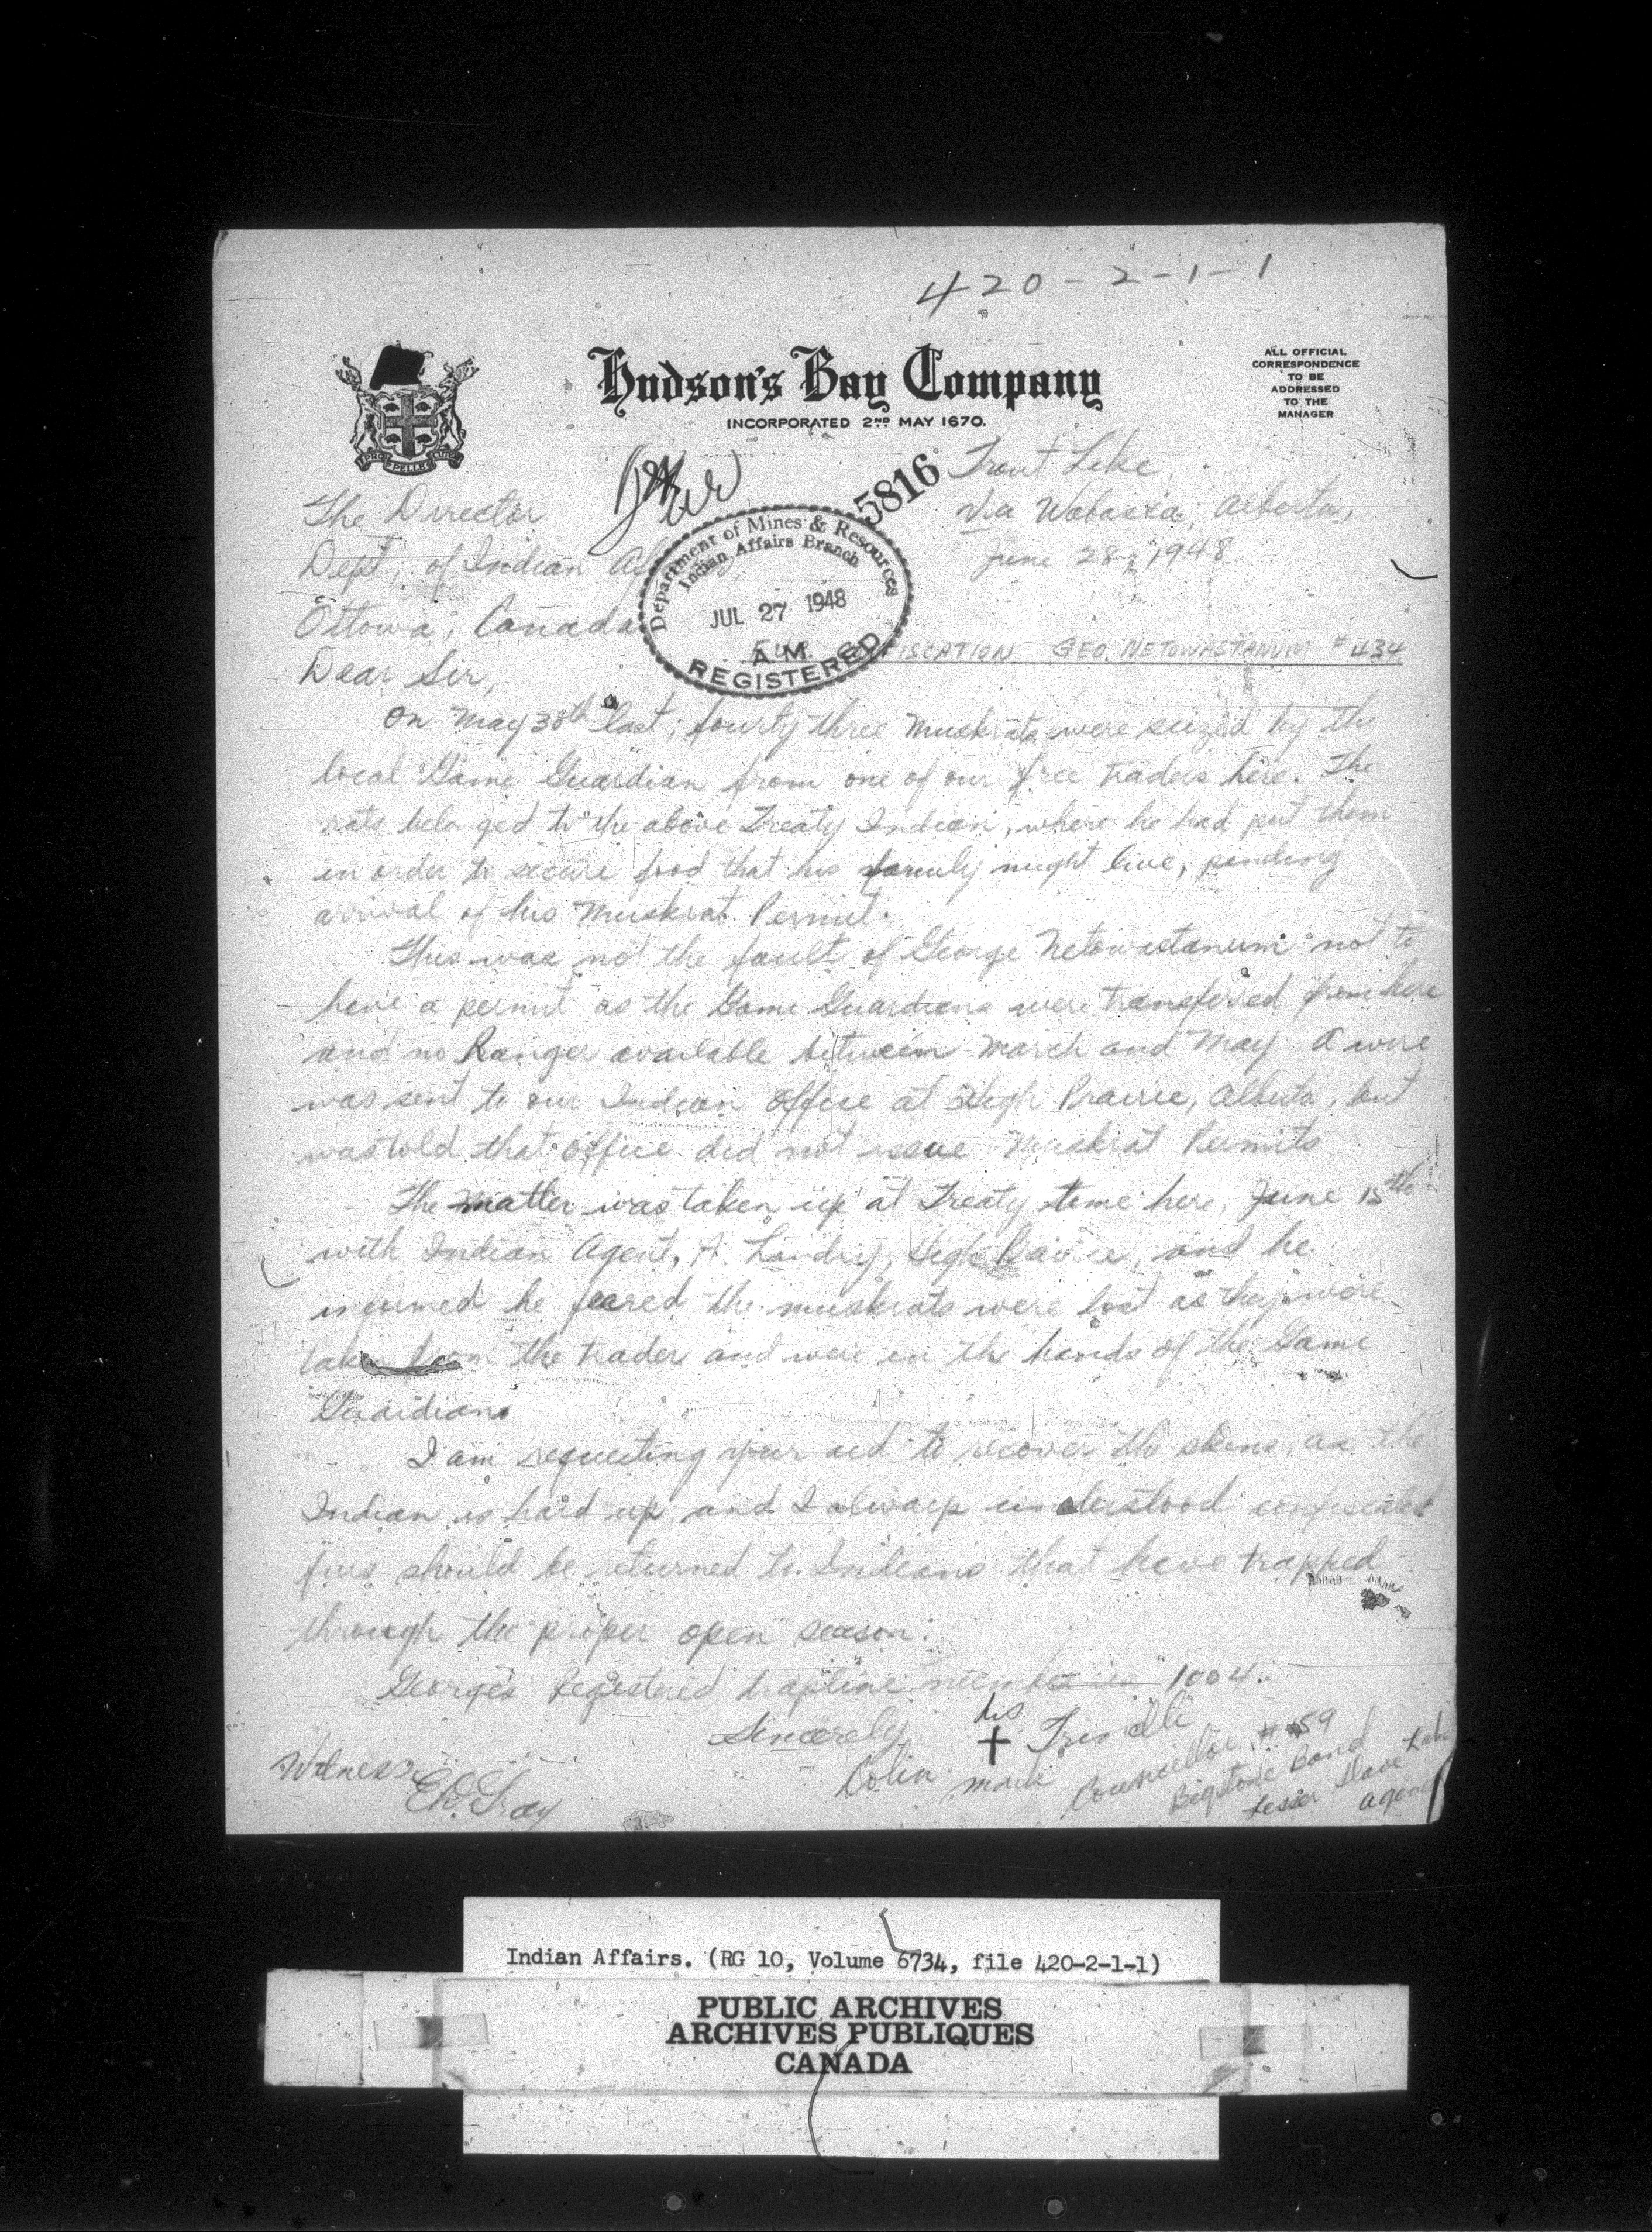 420-2-1-1
Hudson's Bay Company
INCORPORATED 2ND MAY 1670.
ALL OFFICIAL
CORRESPONDENCE
TO BE
ADDRESSED
TO THE
MANAGER
PRO PELLE CUTEM
5816
Trout Lake
Via Wabasca, Alberta,
June 28, 1948
The Director
Dept, of Indian
Ottowa, Canada
Department of Mines & Resources
Indian Affairs Branch
JUL 27 1948
A.M.
REGISTERED
FISCATION GEO. NETOWASTANUM #434
Dear Sir,
On May 38th last, fourty three muskrats were seized by the
local Game Guardian from one of our free traders here. The
rats belonged to the above Treaty Indian, where he had put them
in order to secure food that his family might live, pending
arrival of his Muskrat Permit.
This was not the fault of George Netowastanum not to
have a permit as the Game Guardians were transferred from here
and no Ranger available between March and May. A wire
was sent to our Indian Office at High Prairie, Alberta, but
was told that office did not issue Muskrat Permits
The matter was taken up at Treaty time here, June 15th
with Indian Agent, A. Landry, High Prairie, and he
informed he feared the muskrats were lost as they were
taken from the trader and were in the hands of the Game
Guardians
I am requesting your aid to recover the skins, as the
Indian is hard up and I always understood confiscated
furs should be returned to Indians that have trapped
through the proper open season.
George's Registered trapline number is 1004.
Sincerely
his
Colin + Trindle
mark
Councellor #59
Bigstone Band
Lesser Slave Lake
Agency
Witness
Gray
Indian Affairs. (RG 10, Volume 6734, file 420-2-1-1)
PUBLIC ARCHIVES
ARCHIVES PUBLIQUES
CANADA